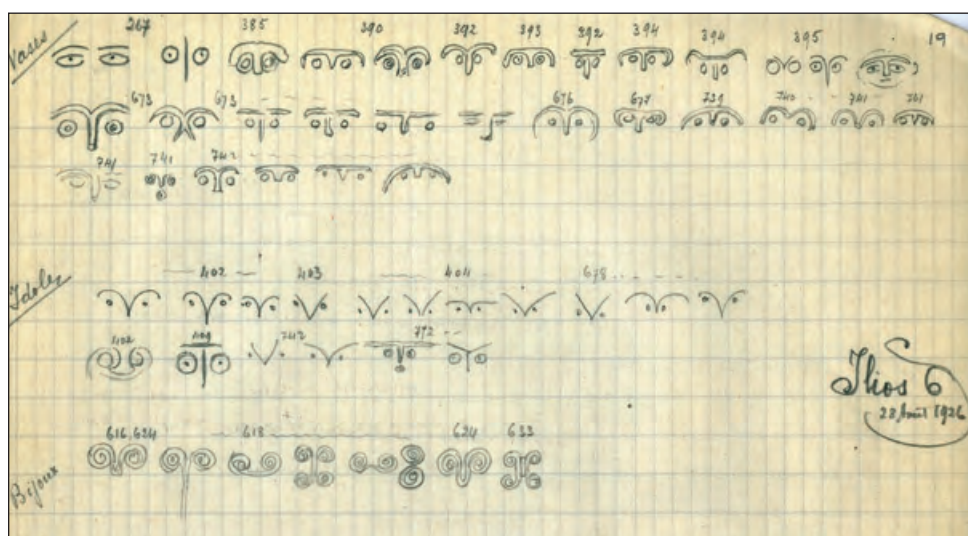 Vases
267 385 390 392 393 392 394 394 395 19
673 673 676 677 731 740 741 741
741 741 742
Idoles
402 403 404 678
402 404 742 772
Ilios 6
28 Août 1926
Bijoux
616,624 618 624 633